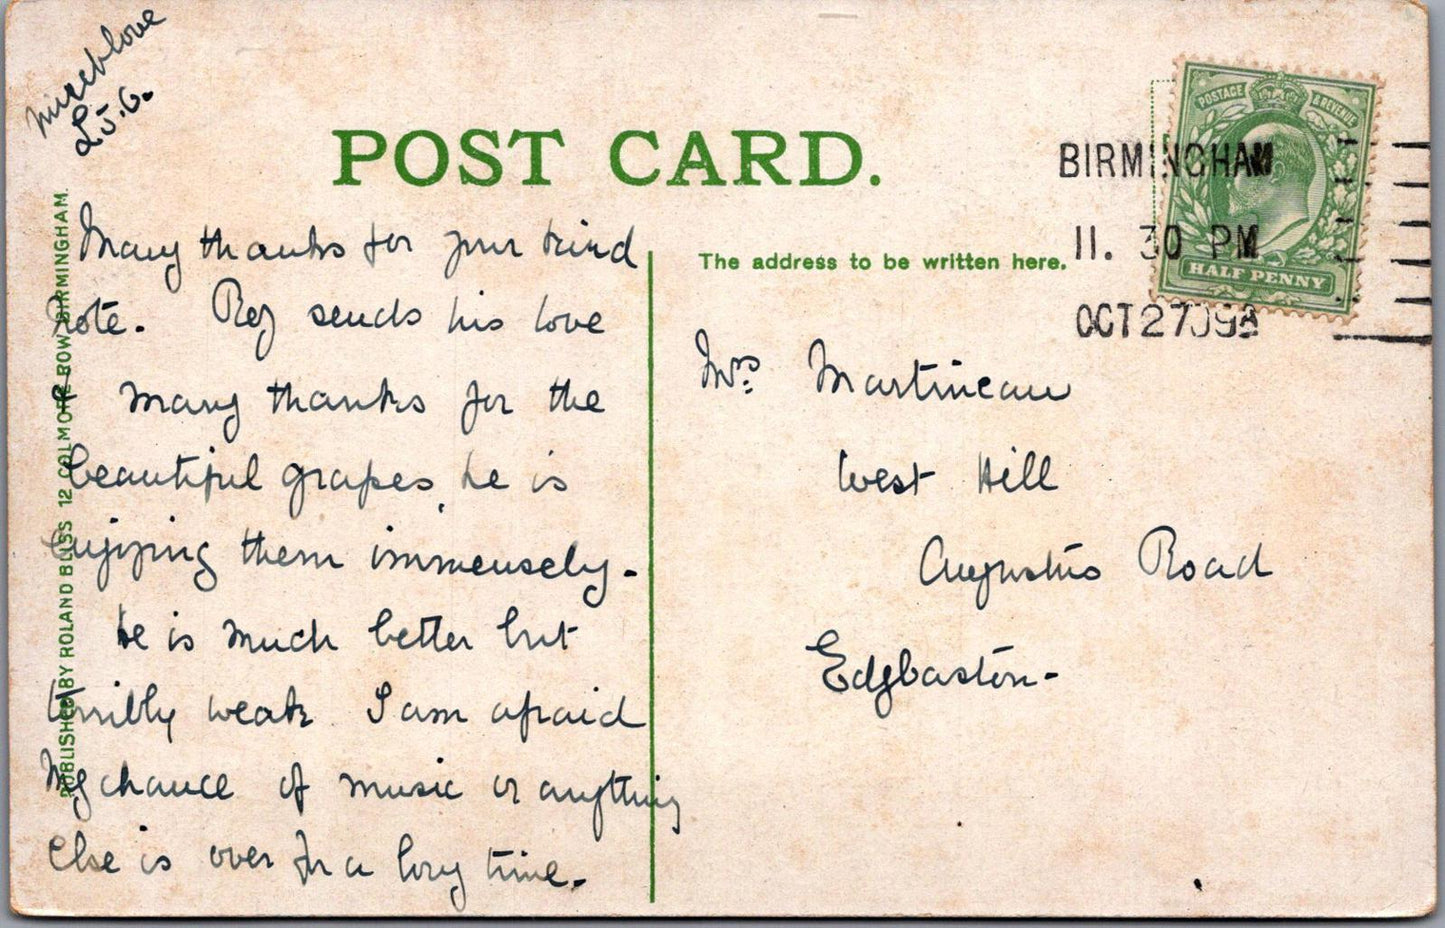 much love
L.J.G.
POST CARD.
POSTAGE & REVENUE
HALF PENNY
BIRMINGHAM
11. 30 PM
OCT 27 09
The address to be written here.
PUBLISHED BY ROLAND BLISS 12 COLMORE ROW BIRMINGHAM.
Many thanks for your kind
note. Reg sends his love
& many thanks for the
beautiful grapes, he is
enjoying them immensely.
He is much better but
terribly weak I am afraid
My chance of music or anything
else is over for a long time.
Mrs. Martineau
West Hill
Augustus Road
Edgbaston-